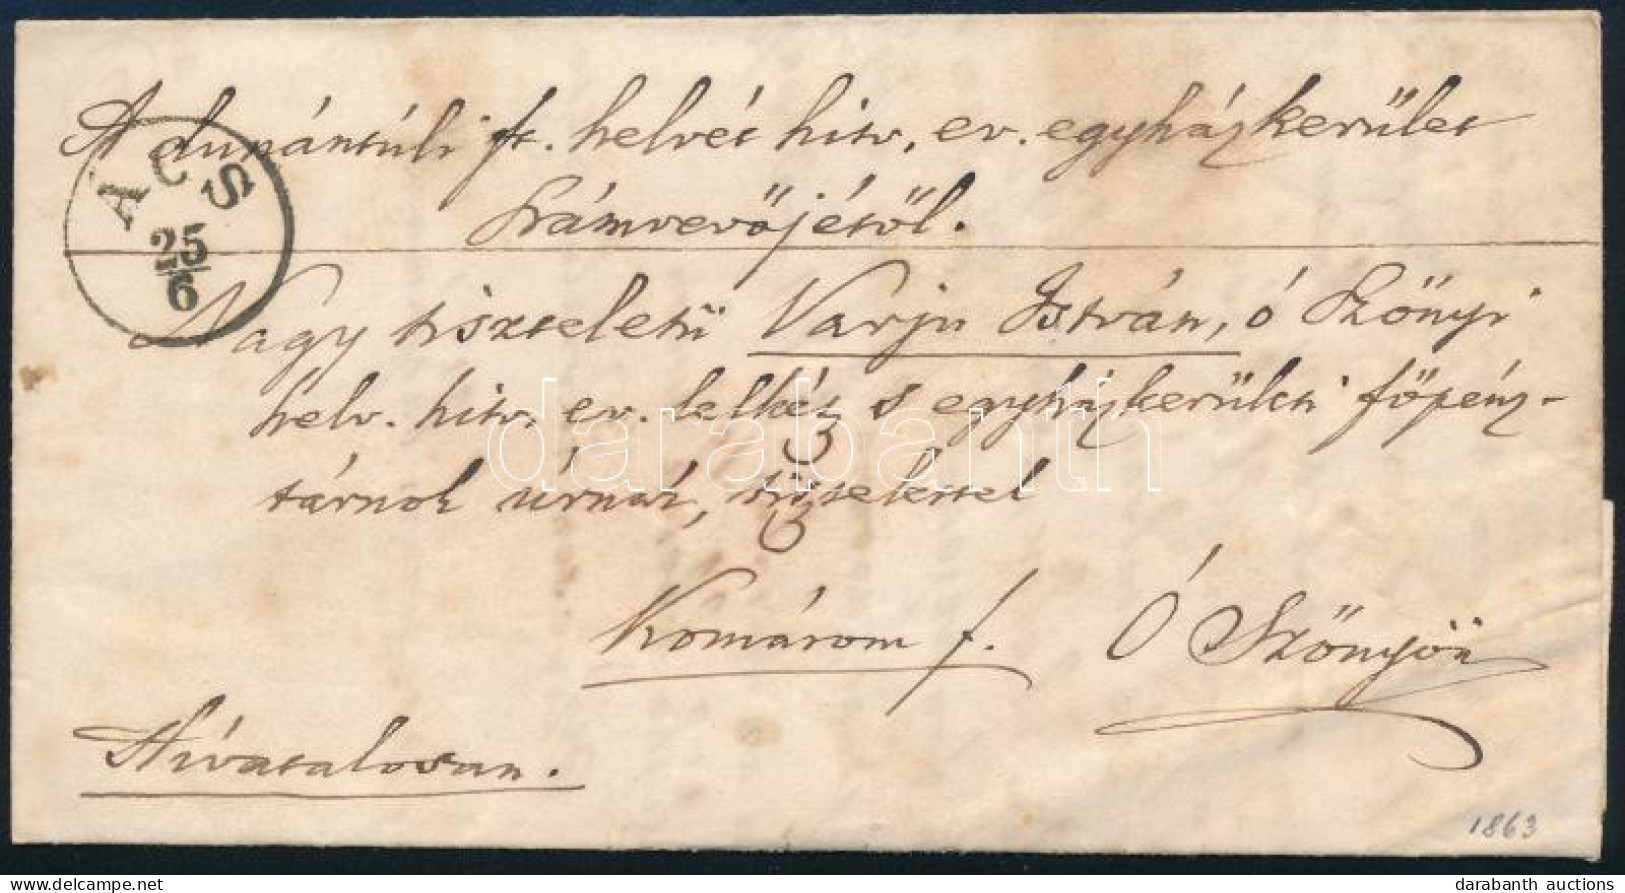 A dunántúli ft. helvét hitv. ev. egyházkerület
Számvevőjétől.
ACS
25
6
Nagy tiszteletű Varju István, ó Szőnyi
helv. hitv. ev. lelkész s egyházkerületi főpénz-
tárnok úrnak, tisztelettel
Komárom f. Ó Szőnyön
Hivatalosan.
1863
darabanth
darabanth auctions
delcampe.net